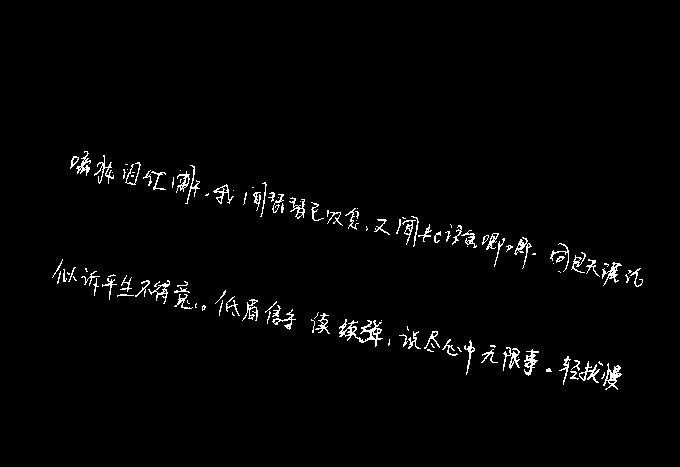 啼妆泪红阑干。我闻琵琶已叹息，又闻此语重唧唧。同是天涯沦
似诉平生不得意。低眉信手续续弹，说尽心中无限事。轻拢慢